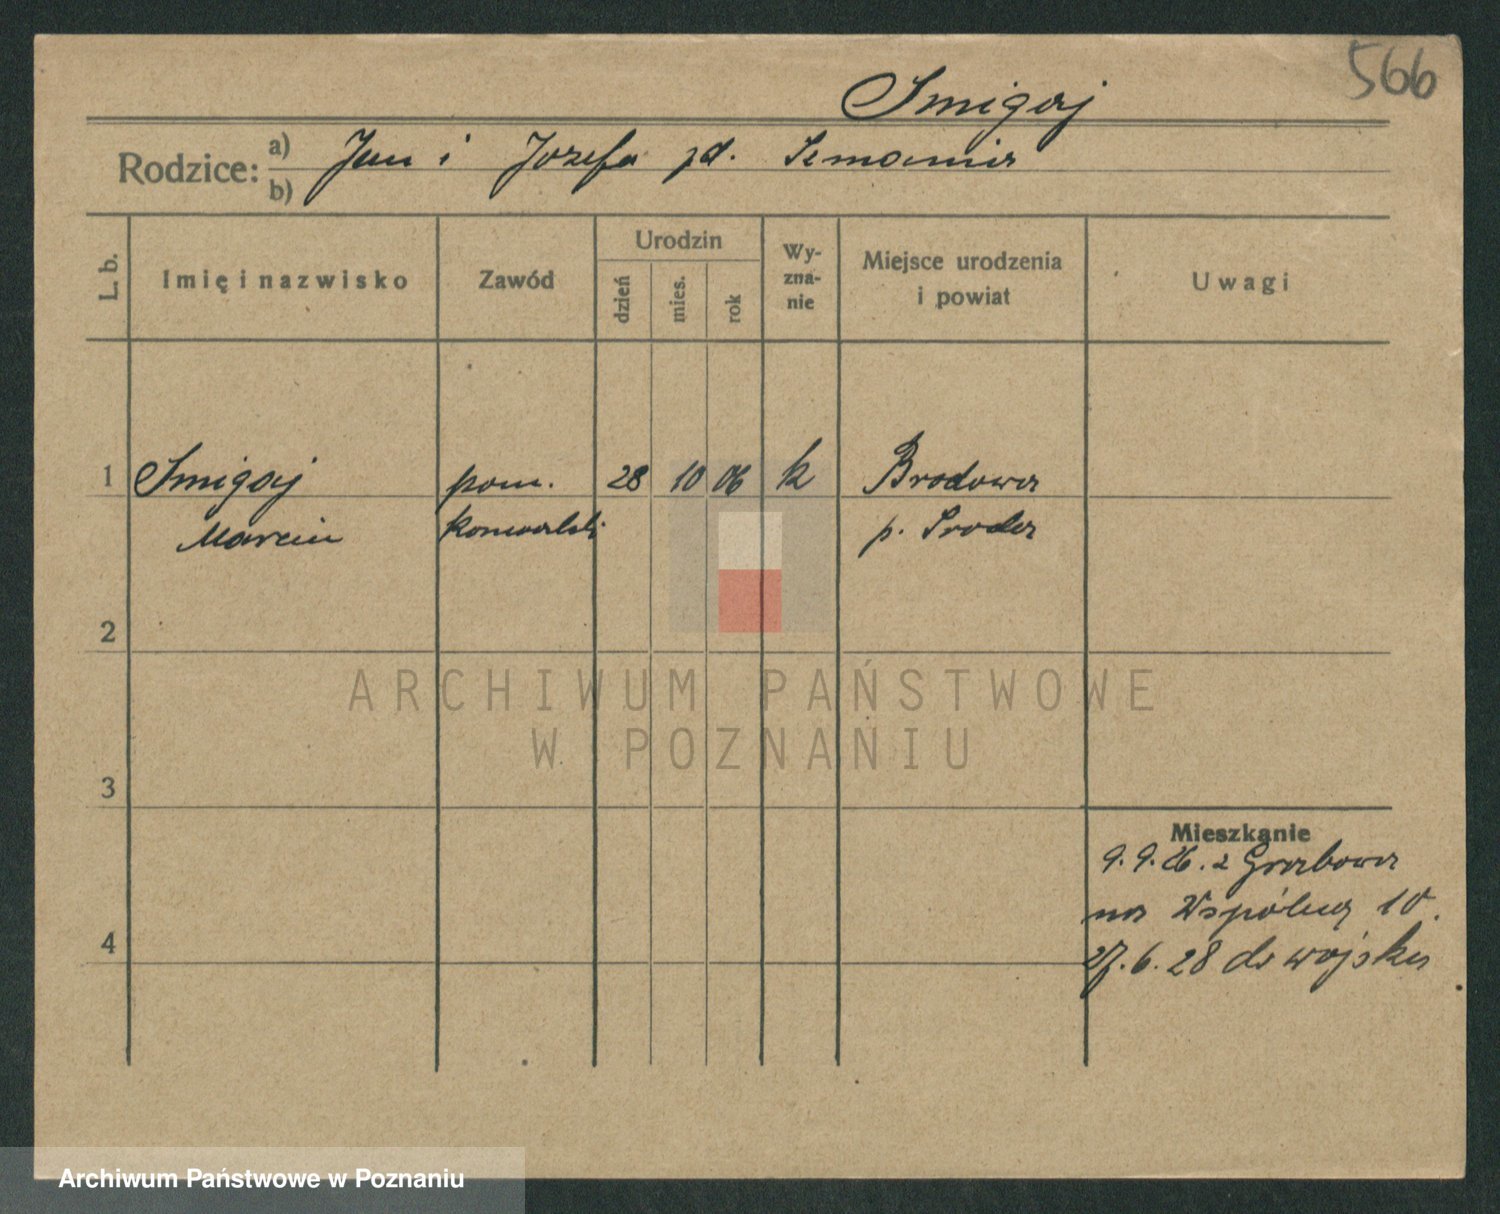 566
Smigaj
Rodzice: a) Jan i Józefa zd.
b)
L. b. Imię i nazwisko Zawód Urodzin dzień mies. rok Wyznanie Miejsce urodzenia i powiat Uwagi
1 Smigaj pom. 28 10 06 k Brodowa
Marcin kowalski p. Środa
2
ARCHIWUM PAŃSTWOWE
W POZNANIU
3
Mieszkanie
9.9.26. z Grabowa
na Wspólną 10.
4
27.6.28 do wojska
Archiwum Państwowe w Poznaniu